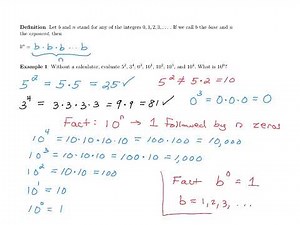 Definition Let b and n stand for any of the integers 0, 1, 2, 3, .... If we call b the base and n the exponent then
bⁿ = b · b · b ... b
n
Example 1 Without a calculator, evaluate 5², 3⁴, 0³, 10⁴, 10³, 10², and 10¹. What is 10⁰?
5² = 5 · 5 = 25 ✓ 5² ≠ 5 · 2 = 10
3⁴ = 3 · 3 · 3 · 3 = 9 · 9 = 81 ✓ 0³ = 0 · 0 · 0 = 0
Fact: 10ⁿ → 1 followed by n zeros
10⁴ = 10 · 10 · 10 · 10 = 100 · 100 = 10,000
10³ = 10 · 10 · 10 = 100 · 10 = 1,000
10² = 10 · 10 = 100
10¹ = 10
10⁰ = 1
Fact b⁰ = 1
b = 1, 2, 3, ...